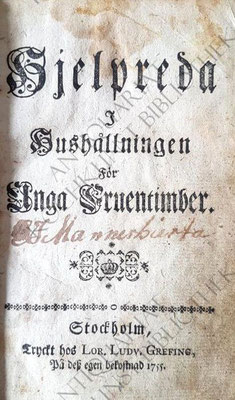 Hjelpreda
I
Hushållningen
För
Unga Fruentimber.
Mannerhierta
Stockholm,
Tryckt hos LOR. LUDV. GREFING,
På deß egen bekostnad 1755.